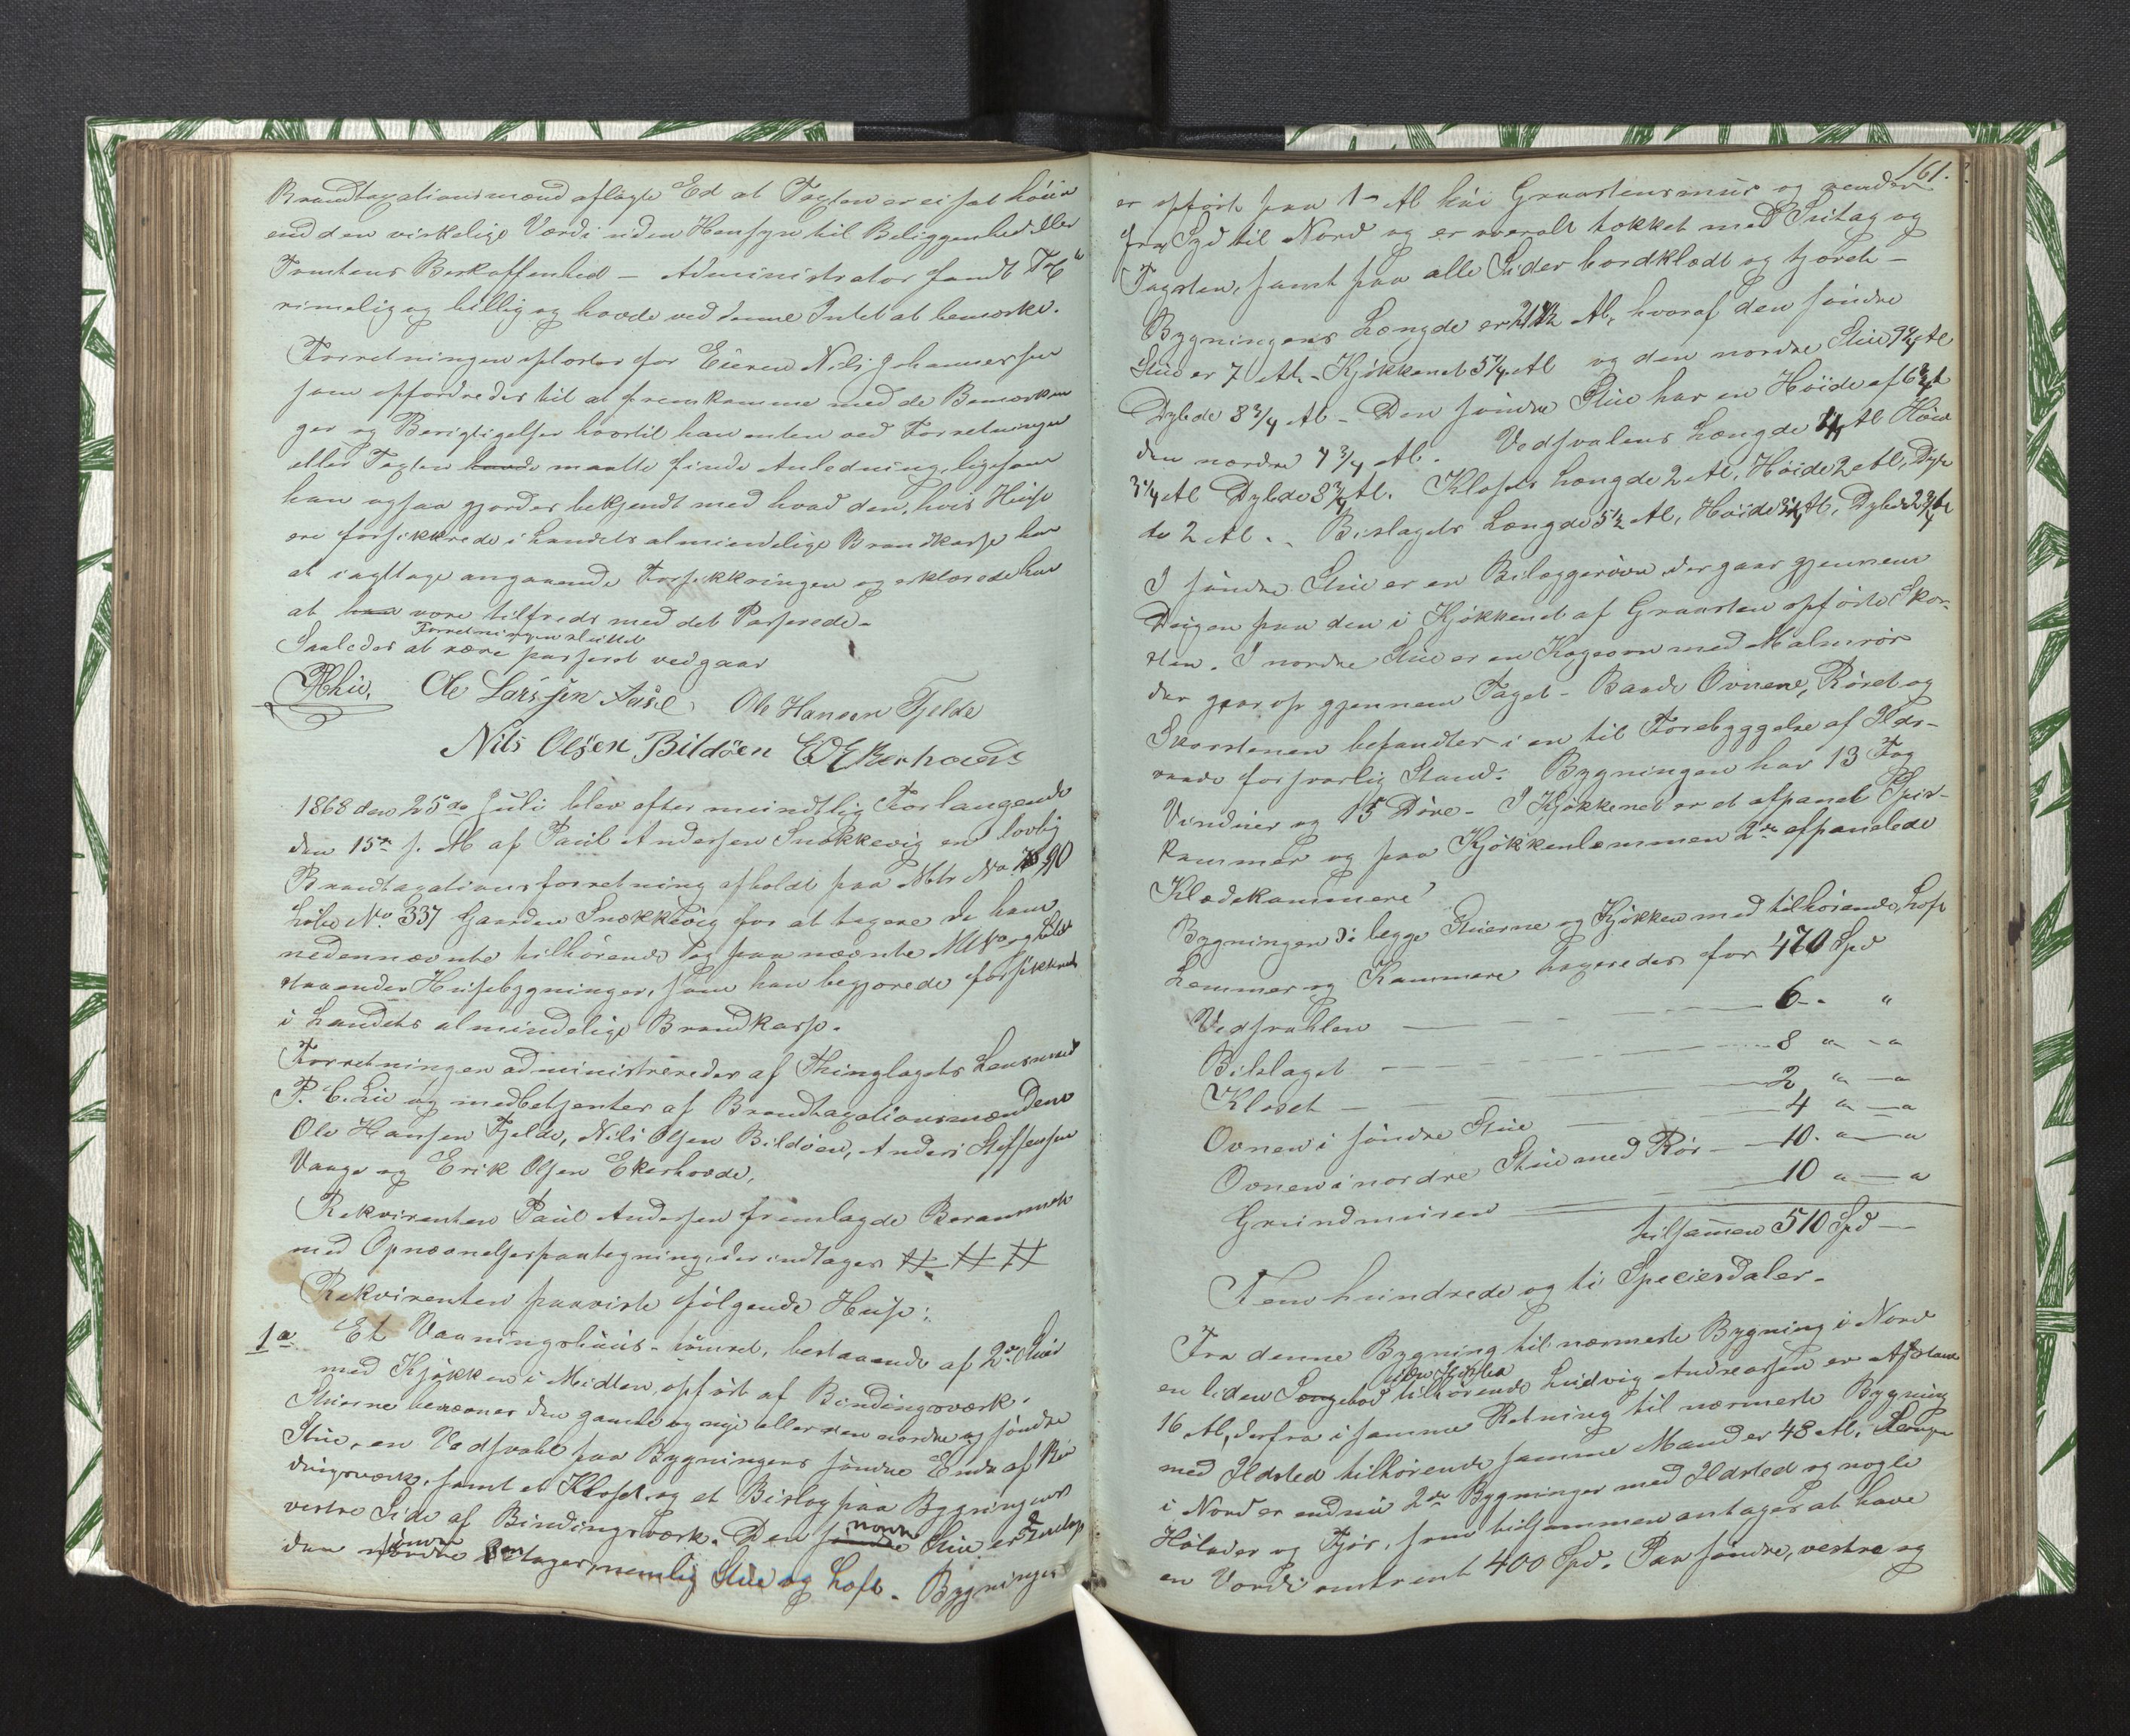 Brandtaxationsmænd aflagte Ed at Taxten er ei sat høiere
end den virkelige Værdi uden Hensyn til Beliggenhed eller
Tomtens Beskaffenhed – Administrator fandt
rimelig og billig og havde ved denne Intet at bemærke.
Forretningen oplæstes for Eieren Nils Johannessen
som opfordredes til at fremkomme med de Bemærknin
ger og Berigtigelser hvortil han enten ved Forretningen
eller Taxten havde maatte finde Anledning, ligesom
han ogsaa gjordes bekjendt med hvad den, hvis Huse
ere forsikkrede i Landets almindelige Brandkasse har
at iagttage angaaende Forsikkringen og erklærede han
at han være tilfreds med det Passerede.
Forretningen sluttet
Saaledes at være passeret vedgaar
PLie, Ole Larssen Aase Ole Hansen Fjelde
Nils Olsen Bildöen E O Ekerhovd
1868 den 25de Juli blev efter mundtlig Forlangende
den 15de s. M af Paul Andersen Snekkevig en lovlig
Brandtaxationsforretning afholdt paa Mtr No 90
Løbe No 337 Gaarden Snekkevig for at taxere de ham
nedennævnte tilhørende og paa nævnte M No og Gaard
staaende Husebygninger, som han begjærede forsikkret
i Landets almindelige Brandkasse.
Forretningen administreredes af Thinglagets Lensmand
P. C. Lie og medbetjentes af Brandtaxationsmændene
Ole Hansen Fjelde, Nils Olsen Bildöen, Anders Steffensen
Vaage og Erik Olsen Ekerhovde.
Rekvirenten Paul Andersen fremlagde Berammelse
med Opnævnelsespaategning, der indtages # # #
Rekvirenten paaviste følgende Huse:
1a Et Vaaningshuus- umuret, bestaaende af 2de Stuer
med Kjøkken i Midten, opført af Bindingsværk.
Stuerne benævnes den gamle og nye eller den nordre og søndre
Stue, en Vedsvahl paa Bygningens søndre Ende af Bin
dingsværk, samt et Kloset og et Bislag paa Bygningens
vestre Side af Bindingsværk. Den søndre nordre Stue er 2 Etages
den nordre søndre Etages, nemlig Stue og Loft. Bygningen
161.
er opført paa 1 Al høi Graastensmuur og vender
fra Syd til Nord og er overalt tækket med Sutag og
Tagsten, samt paa alle Sider bordklædt og tjæret –
Bygningens Længde er 21 1/2 Al, hvoraf den søndre
Stue er 7 Al – Kjøkkenet 5 1/4 Al og den nordre Stue 9 1/4 Al
Dybde 8 3/4 Al – Den søndre Stue har en Høide af 6 3/4 Al
den nordre 7 3/4 Al. Vedsvalens Længde 4 Al Høide
3 1/4 Al Dybde 8 3/4 Al. Klosets Længde 2 Al, Høide 2 Al, Dyb
de 2 Al. – Bislagets Længde 5 1/2 Al, Høide 3 1/4 Al, Dybde 2 3/4 Al
I søndre Stue er en Bilæggerovn, der gaar gjennem
Veggen paa den i Kjøkkenet af Graasten opførte Skor-
sten. I nordre Stue er en Kogeovn med Malmrør
der gaar op gjennem Taget – Baade Ovnene, Røret og
Skorstenen befandtes i en til Forebyggelse af Ilds-
vaade forsvarlig Stand. Bygningen har 13 Fag
Vinduer og 15 Døre – I Kjøkkenet er et afpanelt Spise-
kammer og paa Kjøkkenlemmen 2de afpanelede
Klædekammere
Bygningen Di begge Stuerne og Kjøkken med tilhørende Loft
Lemmer og Kammere taxeredes for 470 Spd
Vedsvahlen – 6 – "
Bislaget – 8 " – "
Kloset – 2 " – "
Ovnen i søndre Stue – 4 " – "
Ovnen i nordre Stue med Rør – 10 " – "
Grundmuren – 10 " – "
tilsammen 510 Spd –
Fem hundrede og ti Speciesdaler.
Fra denne Bygning til nærmeste Bygning i Nord
uden Ildsted
en liden Sengebod tilhørende Ludvig Andreassen er Afstand
16 Al, derfra i samme Retning til nærmeste Bygning
med Ildsted tilhørende samme Mand er 48 Al. Længer
i Nord er endnu 2de Bygninger med Ildsted og nogle
Hølader og Fjøs, som tilsammen antages at have
en Værdi omtrent 400 Spd. Paa søndre, vestre og